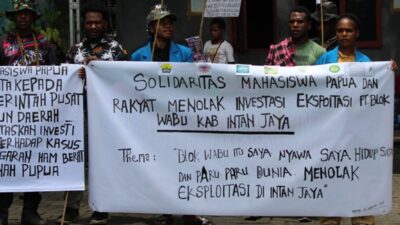 ASISWA PAPUA
TA KEPADA
ERINTAH PUSAT
UN DAERAH
TASKAN INVESTI
ERHADAP KASUS
GARAN HAM BERAT
NAH PUPUA
SOLIDARITAS MAHASISWA PAPUA DAN
RAKYAT MENOLAK INVESTASI EKSPLOITASI PT. BLOK
WABU KAB INTAN JAYA
Thema: "BLOK WABU ITU SAYA NYAWA SAYA HIDUP SAYA
DAN PARU PARU DUNIA. MENOLAK
EKSPLOITASI DI INTAN JAYA"